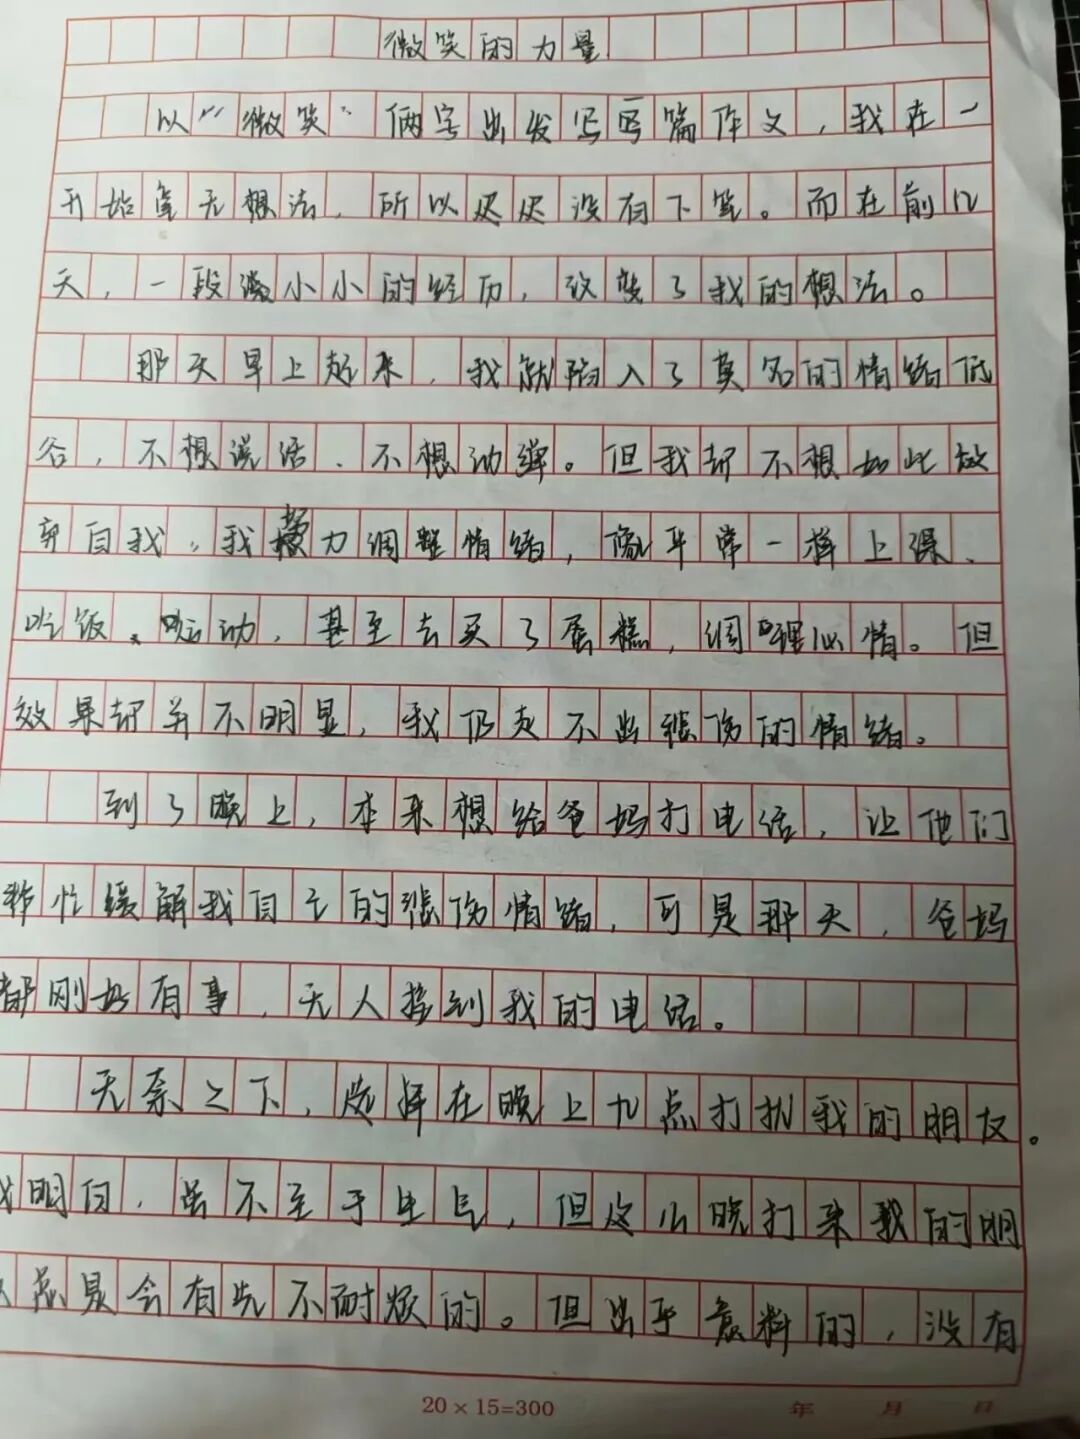 微笑的力量
以“微笑”俩字出发写写篇作文，我在一
开始毫无想法，所以迟迟没有下笔。而在前几
天，一段小小的经历，改变了我的想法。
那天早上起来，我就陷入了莫名的情绪低
谷，不想说话、不想动弹。但我却不想如此放
弃自我，我努力调整情绪，像平常一样上课、
吃饭、运动，甚至去买了蛋糕，调理心情。但
效果却并不明显，我仍走不出悲伤的情绪。
到了晚上，本来想给爸妈打电话，让他们
帮忙缓解我自己的悲伤情绪，可是那天，爸妈
都刚好有事，无人接到我的电话。
无奈之下，选择在晚上九点打扰我的朋友。
我明白，虽不至于生气，但这么晚打来我的朋
友总是会有些不耐烦的。但出乎意料的，没有
20×15=300 年 月 日